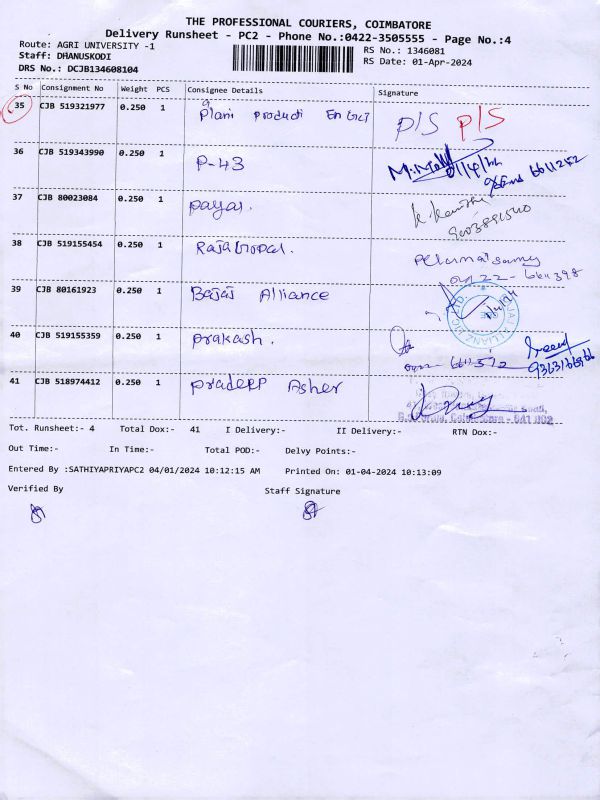 THE PROFESSIONAL COURIERS, COIMBATORE
Delivery Runsheet - PC2 - Phone No.:0422-3505555 - Page No.:4
Route: AGRI UNIVERSITY -1
Staff: DHANUSKODI
DRS No.: DCJB134608104
RS No.: 1346081
RS Date: 01-Apr-2024
S No Consignment No Weight PCS Consignee Details Signature
35 CJB 519321977 0.250 1 Plani Producti P/S P/S
36 CJB 519343990 0.250 1 P-43
37 CJB 80023084 0.250 1 payar.
38 CJB 519155454 0.250 1 Rajagopal.
39 CJB 80161923 0.250 1 Bajaj Alliance
40 CJB 519155359 0.250 1 prakash.
41 CJB 518974412 0.250 1 pradeep Asher
Tot. Runsheet:- 4 Total Dox:- 41 I Delivery:- II Delivery:- RTN Dox:-
Out Time:- In Time:- Total POD:- Delvy Points:-
Entered By :SATHIYAPRIYAPC2 04/01/2024 10:12:15 AM Printed On: 01-04-2024 10:13:09
Verified By Staff Signature